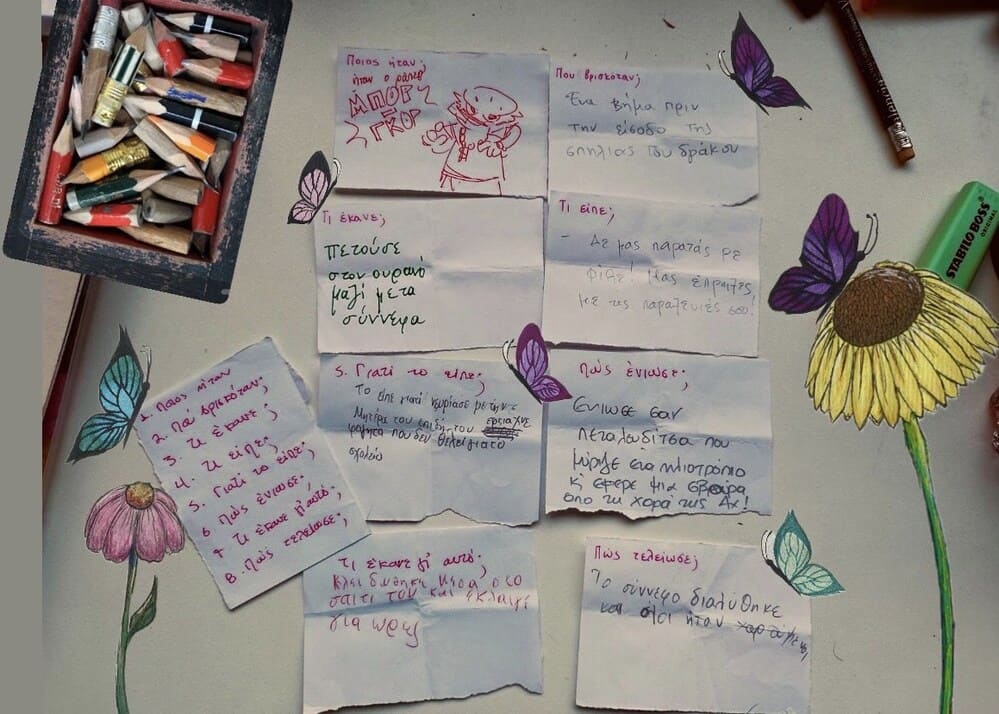 Ποιος ήταν;
ήταν ο ράπερ
ΜΠΟΡ
ΓΚΟΡ
Που βρισκόταν;
Ένα βήμα πριν
την είσοδο της
σπηλιάς του δράκου
Τι έκανε;
πετούσε
στον ουρανό
μαζί με τα
σύννεφα
Τι είπε;
- Δε μας παρατάς ρε
φίλε! Μας έπρηξες
με τις παραξενιές σου!
1. Ποιος ήταν
2. Πού βρισκόταν;
3. Τι έκανε;
4. Τι είπε;
5. Γιατί το είπε;
6 Πώς ένιωσε;
7 Τι έκανε γι' αυτό;
8. Πώς τελείωσε;
5. Γιατί το είπε;
Το είπε γιατί
Μητέρα του επιδή του έφτιαχνε
φαγητα που δεν θέλει για το
σχολείο
Πώς ένιωσε;
Ενιωσε σαν
πεταλουδίτσα που
μύριζε ενα ηλιοτρόπιο
κ' έφερε μια σβούρα
απο τη χαρά της Αχ!
Τι έκανε γι' αυτό;
Κλειδώθηκε μέσα στο
σπίτι του και έκλαιγε
για ώρες
Πώς τελείωσε;
Το σύννεφο διαλύθηκε
και όλοι ήταν
STABILO BOSS
ORIGINAL